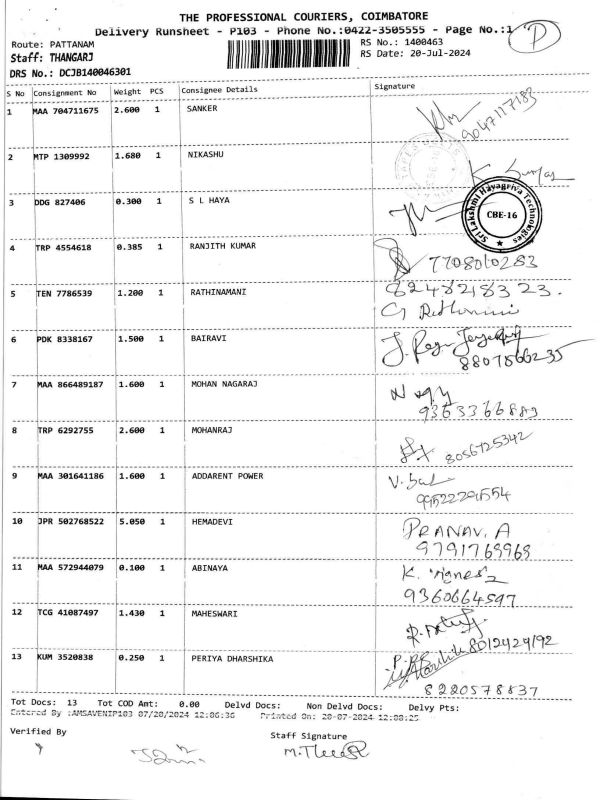 THE PROFESSIONAL COURIERS, COIMBATORE
Delivery Runsheet - P103 - Phone No.:0422-3505555 - Page No.:1
P
Route: PATTANAM
RS No.: 1400463
Staff: THANGARJ
RS Date: 20-Jul-2024
DRS No.: DCJB140046301
S No Consignment No Weight PCS Consignee Details Signature
1 MAA 704711675 2.600 1 SANKER
9047117183
2 MTP 1309992 1.680 1 NIKASHU
3 DDG 827406 0.300 1 S L HAYA
Sri Lakshmi Hayagriva Technologies
CBE-16
4 TRP 4554618 0.385 1 RANJITH KUMAR
7708010283
5 TEN 7786539 1.200 1 RATHINAMANI
8248218323.
6 PDK 8338167 1.500 1 BAIRAVI
8807866235
7 MAA 866489187 1.600 1 MOHAN NAGARAJ
9363366889
8 TRP 6292755 2.600 1 MOHANRAJ
8056725342
9 MAA 301641186 1.600 1 ADDARENT POWER
10 JPR 502768522 5.050 1 HEMADEVI
PRANAV. A
9791769968
11 MAA 572944079 0.100 1 ABINAYA
9360664597
12 TCG 41087497 1.430 1 MAHESWARI
8012429192
13 KUM 3520838 0.250 1 PERIYA DHARSHIKA
8220578837
Tot Docs: 13 Tot COD Amt: 0.00 Delvd Docs: Non Delvd Docs: Delvy Pts:
Entered By :AMSAVENIP103 07/20/2024 12:06:36 Printed On: 20-07-2024 12:08:25
Verified By
Staff Signature